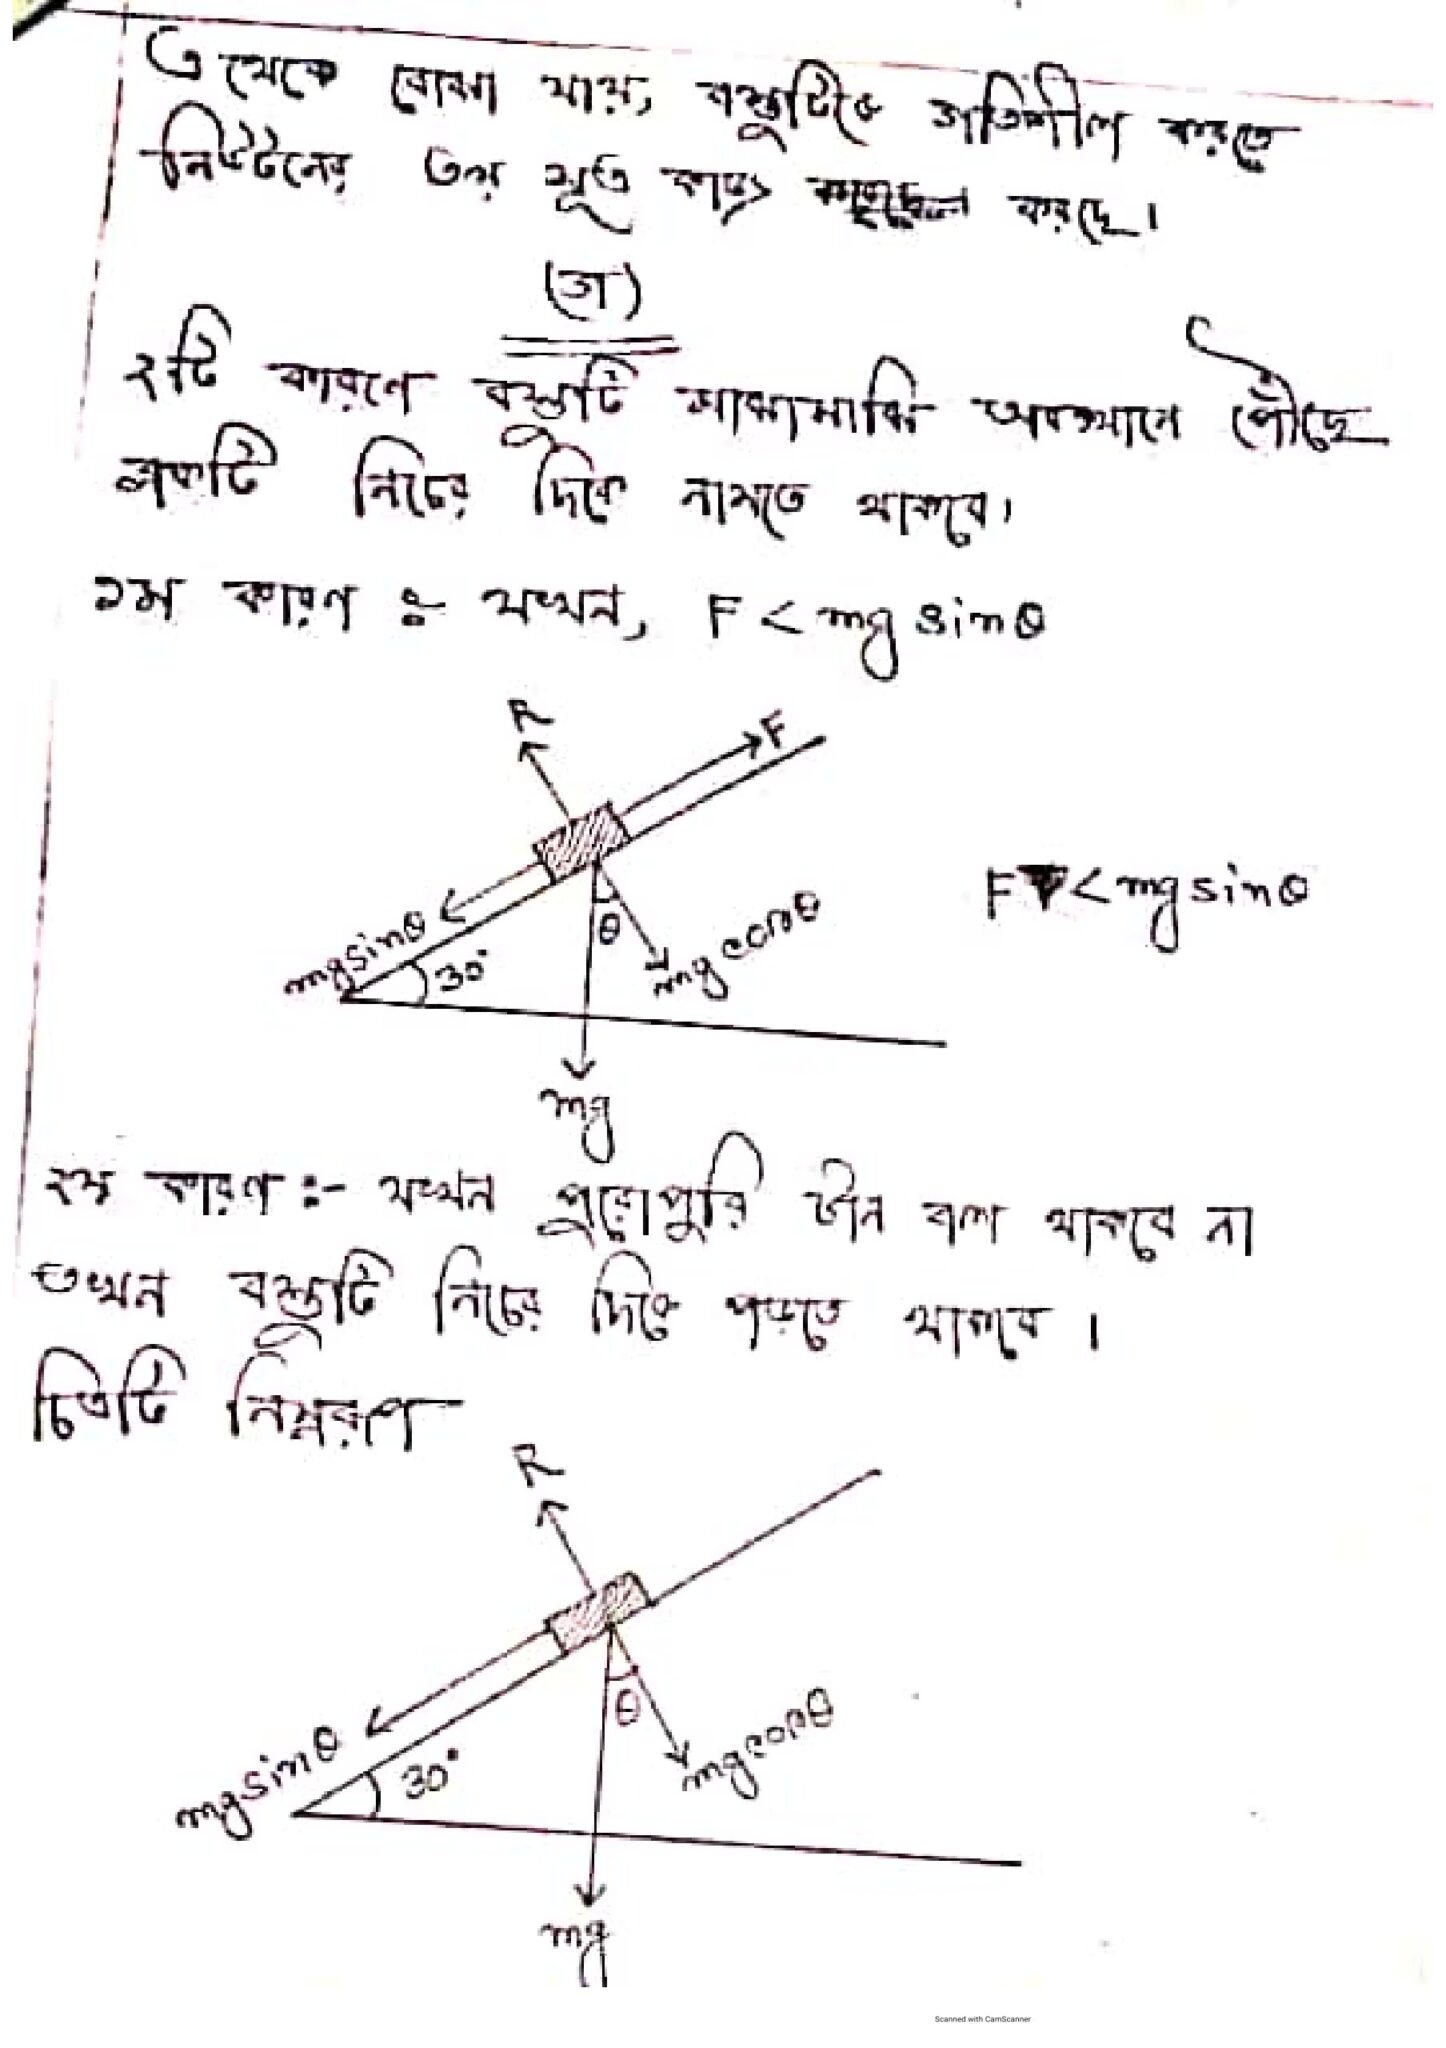 থেকে বোঝা যায়, বস্তুটিকে গতিশীল করতে
নিউটনের ৩য় সূত্র কাজ করছে।
(গ)
২টি কারণে বস্তুটি মাঝামাঝি অবস্থানে পৌঁছে
নিচের দিকে নামতে থাকবে।
১ম কারণ :- যখন, F < mg sinθ
R
F
mg sinθ
30°
θ
mg cosθ
F < mg sinθ
mg
২য় কারণ :- যখন পুরোপুরি টান বল থাকবে না
তখন বস্তুটি নিচের দিকে পড়তে থাকবে।
চিত্রটি নিম্নরূপ
R
mg sinθ
30°
θ
mg cosθ
mg
Scanned with CamScanner